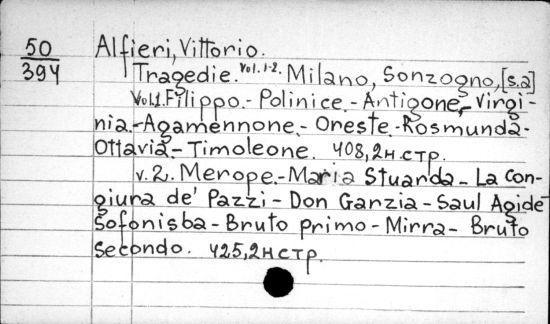 50 Alfieri, Vittorio.
394 Tragedie. Vol. 1-2. Milano, Sonzogno, [s.a]
Vol.1. Filippo.- Polinice.- Antigone,- Virgi-
nia.- Agamennone.- Oreste.- Rosmunda-
Ottavia.- Timoleone. 408, 2н стр.
v.2. Merope.- Maria Stuarda - La con-
giura de' Pazzi - Don Garzia - Saul Agide -
Sofonisba - Bruto primo - Mirra - Bruto
Secondo. 425, 2н стр.